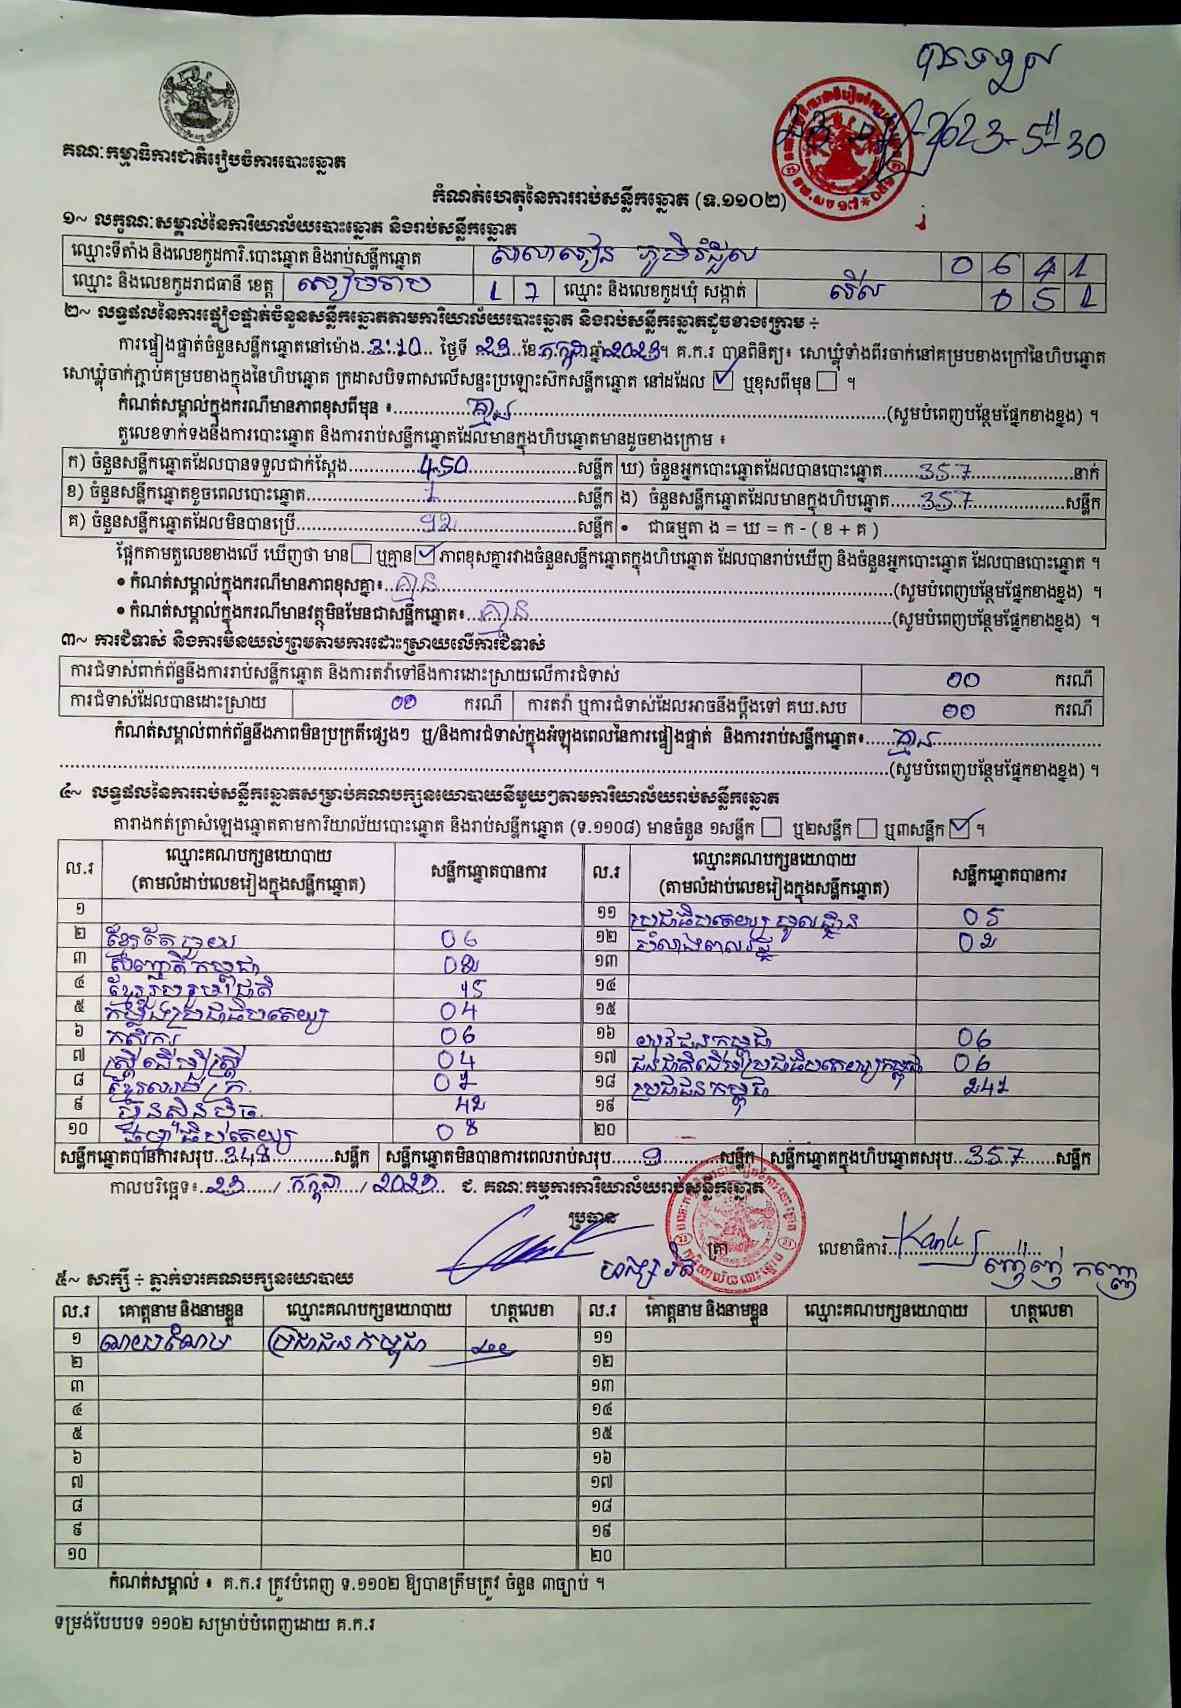 បានទទួល
23-7-2023-5H30
គណៈកម្មាធិការជាតិរៀបចំការបោះឆ្នោត
កំណត់ហេតុនៃការរាប់សន្លឹកឆ្នោត (ទ.១១០២)
១~ លក្ខណៈសម្គាល់នៃការិយាល័យបោះឆ្នោត និងរាប់សន្លឹកឆ្នោត
ឈ្មោះទីតាំង និងលេខកូដការិ.បោះឆ្នោត និងរាប់សន្លឹកឆ្នោត សាលារៀន ភូមិ 0 6 4 1
ឈ្មោះ និងលេខកូដរាជធានី ខេត្ត សៀមរាប 1 7 ឈ្មោះ និងលេខកូដឃុំ សង្កាត់ 0 5 1
២~ លទ្ធផលនៃការផ្ទៀងផ្ទាត់ចំនួនសន្លឹកឆ្នោតតាមការិយាល័យបោះឆ្នោត និងរាប់សន្លឹកឆ្នោតដូចខាងក្រោម ÷
ការផ្ទៀងផ្ទាត់ចំនួនសន្លឹកឆ្នោតនៅម៉ោង..3:10.. ថ្ងៃទី ..23..ខែ.កក្កដា.ឆ្នាំ.2023។ គ.ក.រ បានពិនិត្យ៖ សោឃ្លុំទាំងពីរចាក់នៅគម្របខាងក្រៅនៃហិបឆ្នោត
សោឃ្លុំចាក់ភ្ជាប់គម្របខាងក្នុងនៃហិបឆ្នោត ក្រដាសបិទពាសលើសន្ទះប្រឡោះស៊កសន្លឹកឆ្នោត នៅដដែល ☑ ឬខុសពីមុន ☐ ។
កំណត់សម្គាល់ក្នុងករណីមានភាពខុសពីមុន ៖......គ្មាន......(សូមបំពេញបន្ថែមផ្នែកខាងខ្នង) ។
តួលេខទាក់ទងនឹងការបោះឆ្នោត និងការរាប់សន្លឹកឆ្នោតដែលមានក្នុងហិបឆ្នោតមានដូចខាងក្រោម ៖
ក) ចំនួនសន្លឹកឆ្នោតដែលបានទទួលជាក់ស្តែង......450......សន្លឹក ឃ) ចំនួនអ្នកបោះឆ្នោតដែលបានបោះឆ្នោត......357......នាក់
ខ) ចំនួនសន្លឹកឆ្នោតខូចពេលបោះឆ្នោត......1......សន្លឹក ង) ចំនួនសន្លឹកឆ្នោតដែលមានក្នុងហិបឆ្នោត......357......សន្លឹក
គ) ចំនួនសន្លឹកឆ្នោតដែលមិនបានប្រើ......92......សន្លឹក • ជាធម្មតា ង = ឃ = ក - ( ខ + គ )
ផ្អែកតាមតួលេខខាងលើ ឃើញថា មាន☐ ឬគ្មាន☑ ភាពខុសគ្នារវាងចំនួនសន្លឹកឆ្នោតក្នុងហិបឆ្នោត ដែលបានរាប់ឃើញ និងចំនួនអ្នកបោះឆ្នោត ដែលបានបោះឆ្នោត ។
• កំណត់សម្គាល់ក្នុងករណីមានភាពខុសគ្នា៖..គ្មាន......(សូមបំពេញបន្ថែមផ្នែកខាងខ្នង) ។
• កំណត់សម្គាល់ក្នុងករណីមានវត្ថុមិនមែនជាសន្លឹកឆ្នោត៖..គ្មាន......(សូមបំពេញបន្ថែមផ្នែកខាងខ្នង) ។
៣~ ការជំទាស់ និងការមិនយល់ព្រមតាមការដោះស្រាយលើការជំទាស់
ការជំទាស់ពាក់ព័ន្ធនឹងការរាប់សន្លឹកឆ្នោត និងការតវ៉ាទៅនឹងការដោះស្រាយលើការជំទាស់ 00 ករណី
ការជំទាស់ដែលបានដោះស្រាយ 00 ករណី ការតវ៉ា ឬការជំទាស់ដែលអាចនឹងប្តឹងទៅ គឃ.សប 00 ករណី
កំណត់សម្គាល់ពាក់ព័ន្ធនឹងភាពមិនប្រក្រតីផ្សេងៗ ឬ/និងការជំទាស់ក្នុងអំឡុងពេលនៃការផ្ទៀងផ្ទាត់ និងការរាប់សន្លឹកឆ្នោត៖......គ្មាន......
......(សូមបំពេញបន្ថែមផ្នែកខាងខ្នង) ។
៤~ លទ្ធផលនៃការរាប់សន្លឹកឆ្នោតសម្រាប់គណបក្សនយោបាយនីមួយៗតាមការិយាល័យរាប់សន្លឹកឆ្នោត
តារាងកត់ត្រាសំឡេងឆ្នោតតាមការិយាល័យបោះឆ្នោត និងរាប់សន្លឹកឆ្នោត (ទ.១១០៨) មានចំនួន ១សន្លឹក ☐ ឬ២សន្លឹក ☐ ឬ៣សន្លឹក ☑ ។
ល.រ ឈ្មោះគណបក្សនយោបាយ (តាមលំដាប់លេខរៀងក្នុងសន្លឹកឆ្នោត) សន្លឹកឆ្នោតបានការ ល.រ ឈ្មោះគណបក្សនយោបាយ (តាមលំដាប់លេខរៀងក្នុងសន្លឹកឆ្នោត) សន្លឹកឆ្នោតបានការ
១ ១១ ប្រជាធិបតេយ្យមូលដ្ឋាន 05
២ ខ្មែរតែមួយ 06 ១២ 02
៣ សញ្ជាតិកម្ពុជា 02 ១៣
៤ ខ្មែររួបរួមជាតិ 15 ១៤
៥ កម្លាំងប្រជាធិបតេយ្យ 04 ១៥
៦ កសិករ 06 ១៦ យុវជនកម្ពុជា 06
៧ ស្ត្រីដើម្បីស្ត្រី 04 ១៧ ជនជាតិដើមប្រជាធិបតេយ្យកម្ពុជា 06
៨ ០1 ១៨ ប្រជាជនកម្ពុជា 241
៩ ហ៊្វុនស៊ិនប៉ិច 42 ១៩
១០ ធម្មាធិបតេយ្យ 08 ២០
សន្លឹកឆ្នោតបានការសរុប..348......សន្លឹក សន្លឹកឆ្នោតមិនបានការពេលរាប់សរុប......9......សន្លឹក សន្លឹកឆ្នោតក្នុងហិបឆ្នោតសរុប...357......សន្លឹក
កាលបរិច្ឆេទ៖..23....../.កក្កដា...../ 2023.. ជ. គណៈកម្មការការិយាល័យរាប់សន្លឹកឆ្នោត
ប្រធាន
ត្រា លេខាធិការ
៥~ សាក្សី ÷ ភ្នាក់ងារគណបក្សនយោបាយ
ល.រ គោត្តនាម និងនាមខ្លួន ឈ្មោះគណបក្សនយោបាយ ហត្ថលេខា ល.រ គោត្តនាម និងនាមខ្លួន ឈ្មោះគណបក្សនយោបាយ ហត្ថលេខា
១ ប្រជាជនកម្ពុជា ១១
២ ១២
៣ ១៣
៤ ១៤
៥ ១៥
៦ ១៦
៧ ១៧
៨ ១៨
៩ ១៩
១០ ២០
កំណត់សម្គាល់ ៖ គ.ក.រ ត្រូវបំពេញ ទ.១១០២ ឱ្យបានត្រឹមត្រូវ ចំនួន ៣ច្បាប់ ។
ទម្រង់បែបបទ ១១០២ សម្រាប់បំពេញដោយ គ.ក.រ